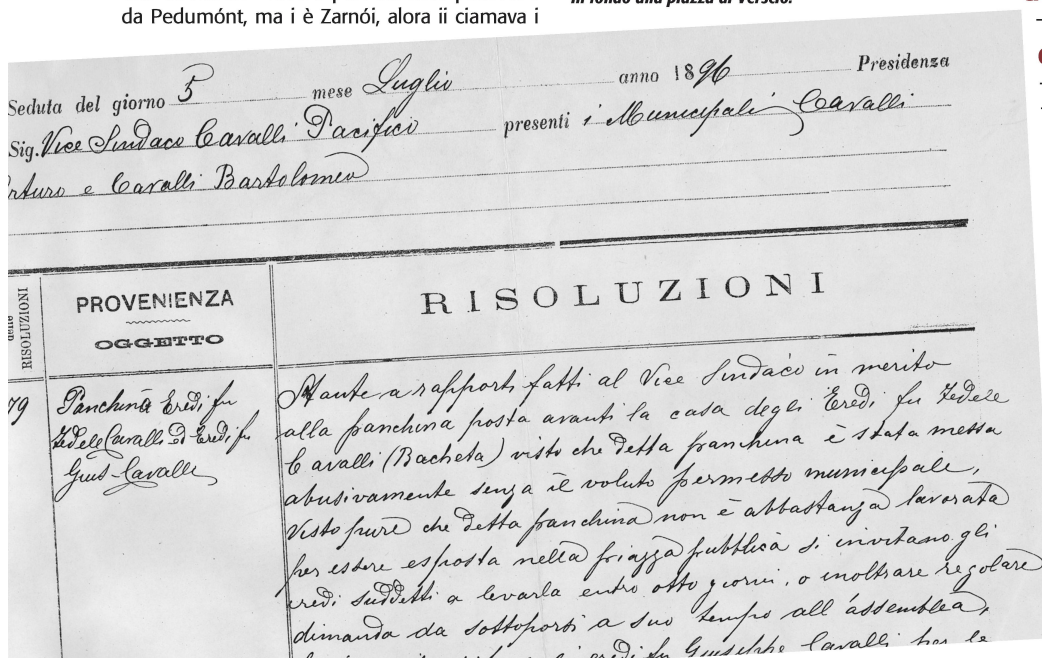 da Pedumónt, ma i è Zarnói, alora ii ciamava i
in fondo alla piazza di Verscio.
Seduta del giorno 5 mese Luglio anno 1896 Presidenza
Sig. Vice Sindaco Cavalli Pacifico presenti i Municipali Cavalli
Arturo e Cavalli Bartolomeo
RISOLUZIONI
PROVENIENZA
OGGETTO
RISOLUZIONI
79
Panchina Eredi fu
Fedele Cavalli ed Eredi fu
Gius. Cavalli
Stante a rapporti fatti al Vice Sindaco in merito
alla panchina posta avanti la casa degli Eredi fu Fedele
Cavalli (Bacheta) visto che detta panchina è stata messa
abusivamente senza il voluto permesso municipale,
Visto pure che detta panchina non è abbastanza lavorata
per essere esposta nella piazza pubblica si invitano gli
eredi suddetti a levarla entro otto giorni, o inoltrare regolare
dimanda da sottoporsi a suo tempo all'assemblea,
eredi fu Giuseppe Cavalli per le